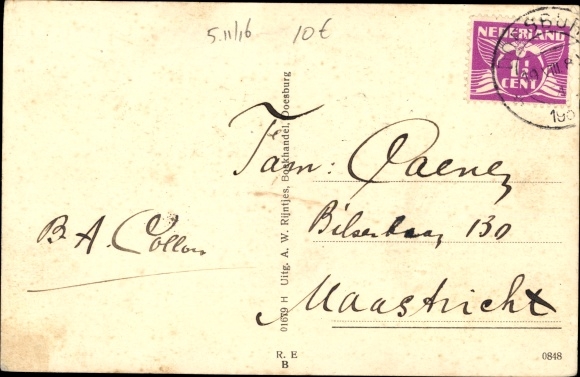 5.11/16 10€
NEDERLAND
1½
CENT
Fam:
B. A. Collon
130
Maastricht
01679 H Uitg. A. W. Rijntjes, Boekhandel, Doesburg
R. E
B
0848